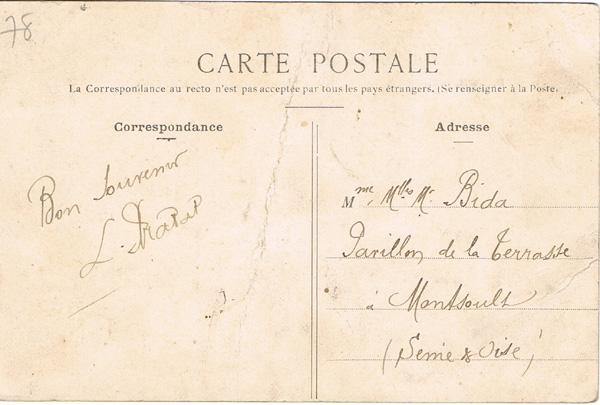 78
CARTE POSTALE
La Correspondance au recto n'est pas acceptée par tous les pays étrangers. (Se renseigner à la Poste)
Correspondance
Bon Souvenir
L.
Adresse
Mme, Mlles Mr Bida
Pavillon de la Terrasse
à Montsoult
(Seine & Oise)